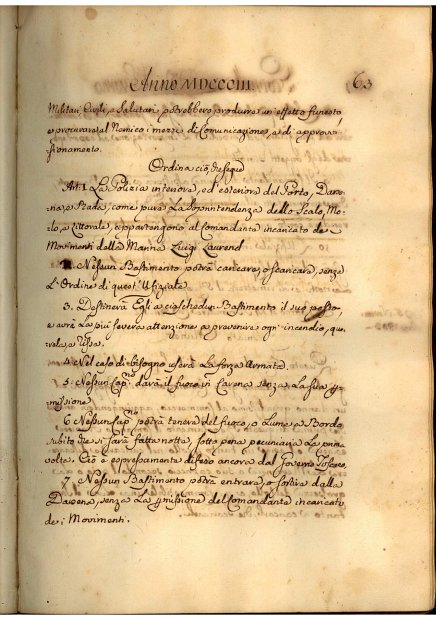 Anno MDCCCIII. 63
Militari, Civili, e Salutari potrebbero produrre un effetto funesto,
e procurare al Nemico i mezzi di Comunicazione, e di approvi-
sionamento.
Ordina ciò che segue
Art. 1. La Polizia interiora, ed esteriora del Porto, Darse-
na, e Rada, come pure La Soprintendenza dello Scalo, Mo-
lo, e Littorale, appartengono al Comandante incaricato de
Movimenti della Marina Luigi Laurend
2. Nessun Bastimento potrà caricare, o scaricare, senza
L'Ordine di quest'Ufiziale
3. Destinerà Egli a ciaschedun Bastimento il suo posto,
e avrà La più severa attenzione a prevenire ogni incendio, que-
rele, e rissa.
4. Nel caso di bisogno userà La forza Armata.
5. Nessun Cap.no darà il fuoco in Carena senza La sua p-
missione
6. Nessun Cap.no potrà tenere del fuoco, o Lume, a Bordo
subito che si sarà fatta notte, sotto pena pecuniaria La prima
volta. Ciò è espressamente difeso ancora dal Governo Toscano,
7. Nessun Bastimento potrà entrare, o sortire dalla
Darsena, senza La pmissione del Comandante incaricato
de i Movimenti.